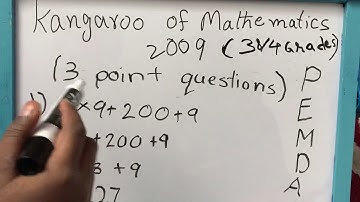 Kangaroo of Mathematics
2009 (3&4 Grades)
(3 point questions)
1) × 9 + 200 + 9
+ 200 + 9
+ 9
27
P
E
M
D
A